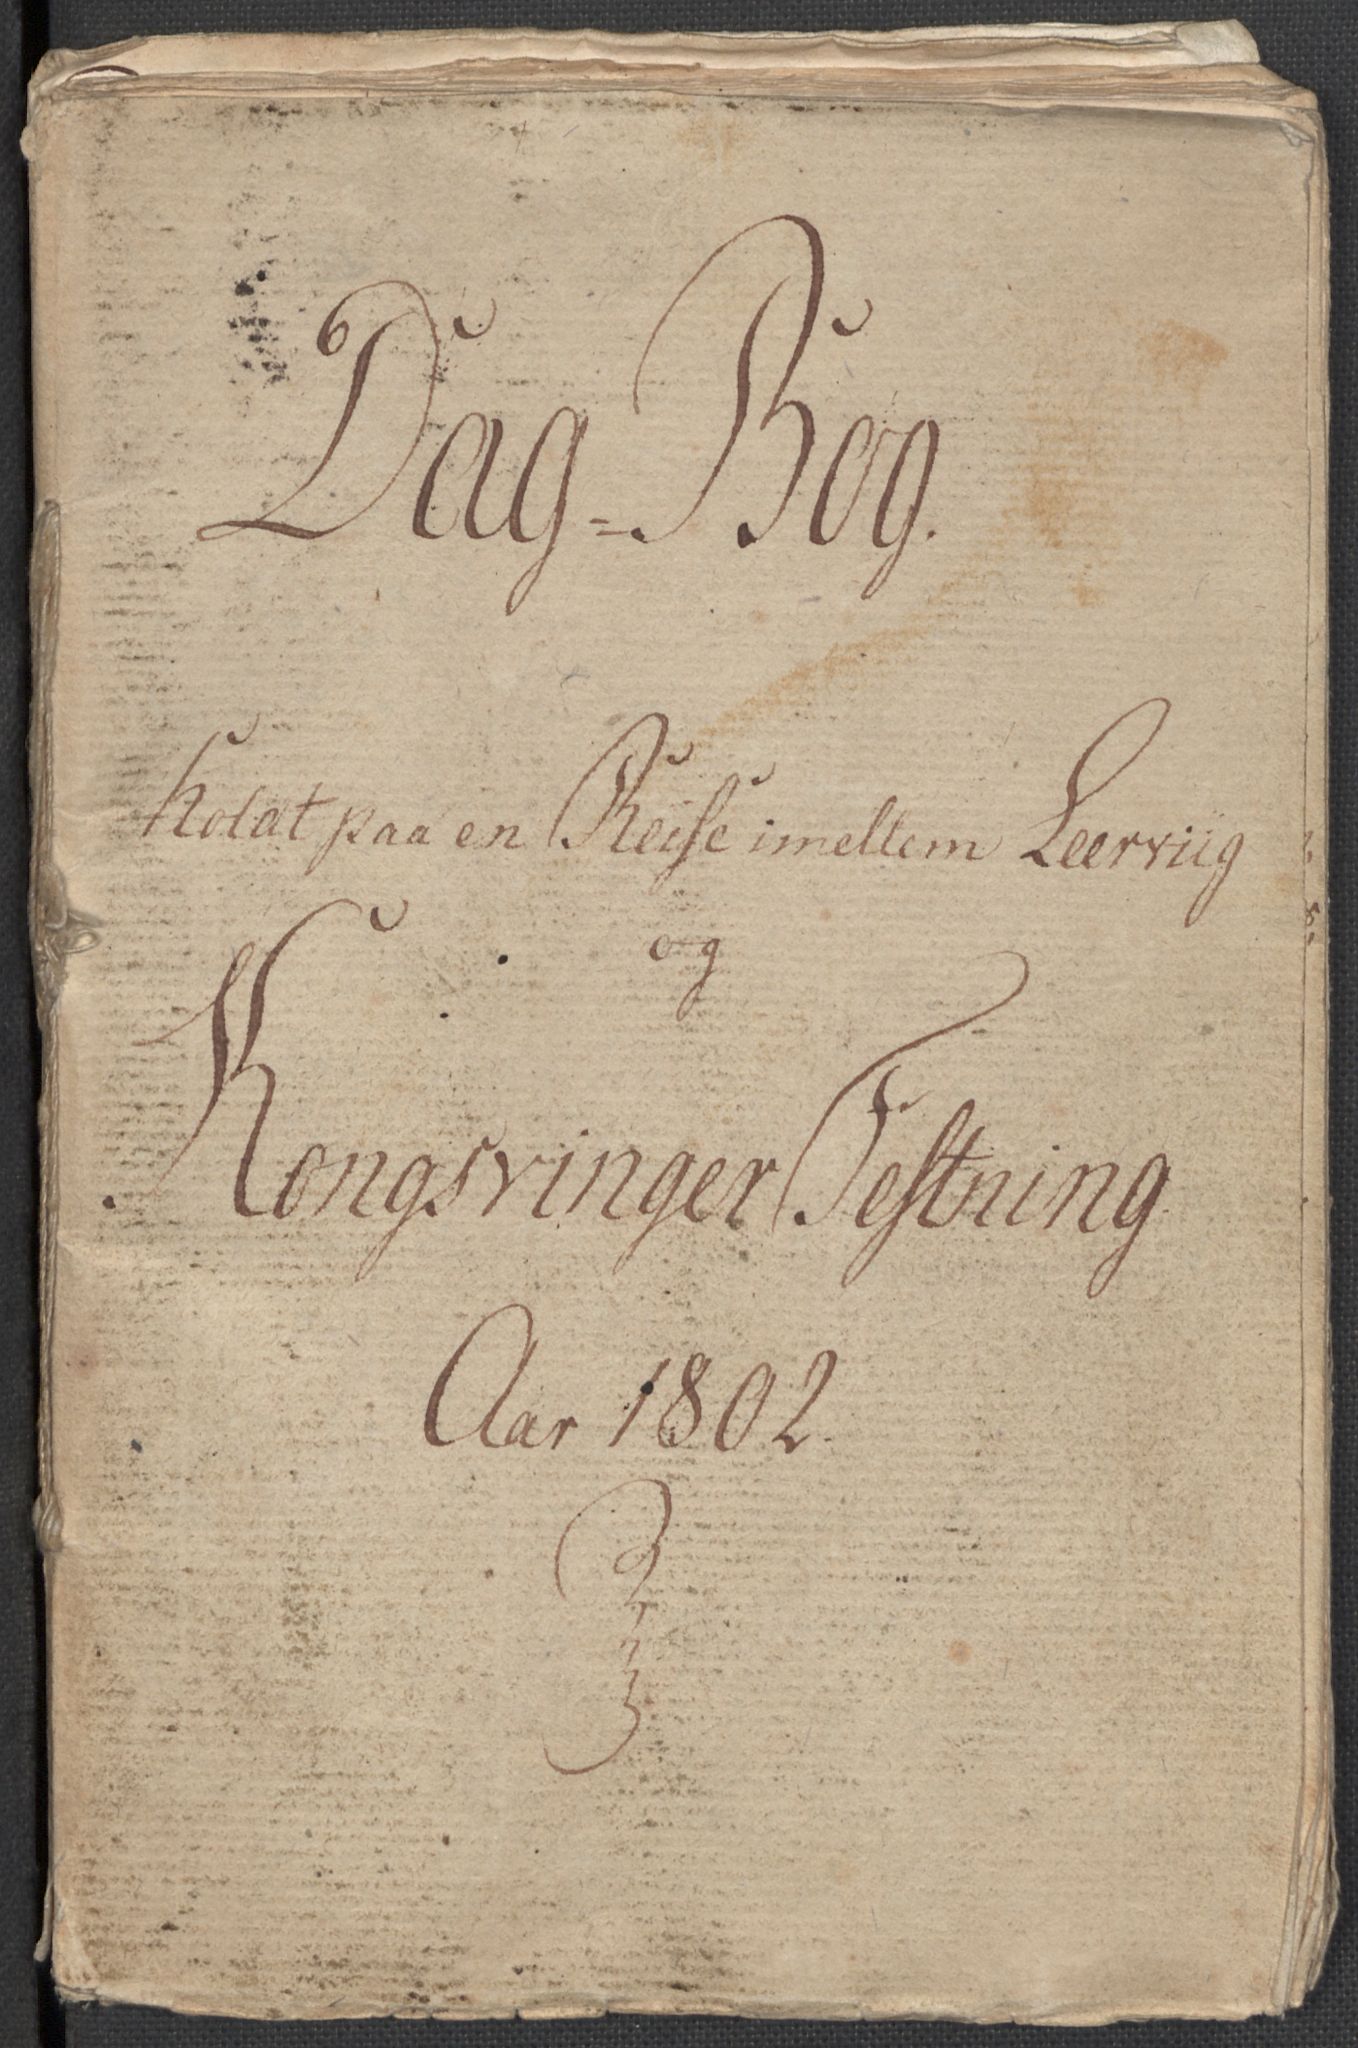 Dag=Bog.
holdt paa en Reise imellem Leerviig
og
Kongsvinger Festning
Aar 1802.